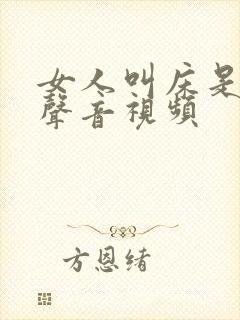 女人叫床是
聲音視頻
方恩緒